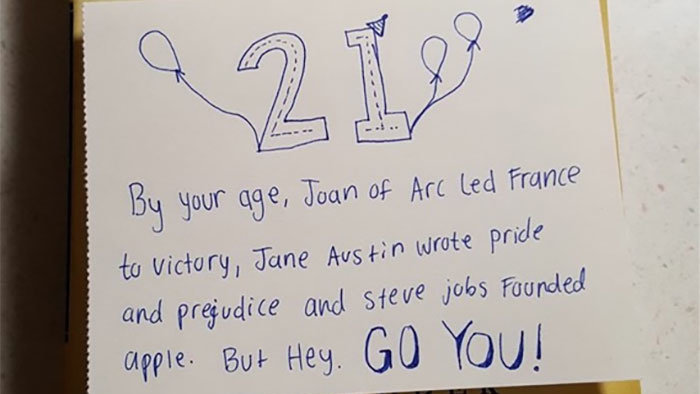 21
By your age, Joan of Arc Led France
to victory, Jane Austin wrote pride
and prejudice and steve jobs Founded
apple. But Hey. GO YOU!